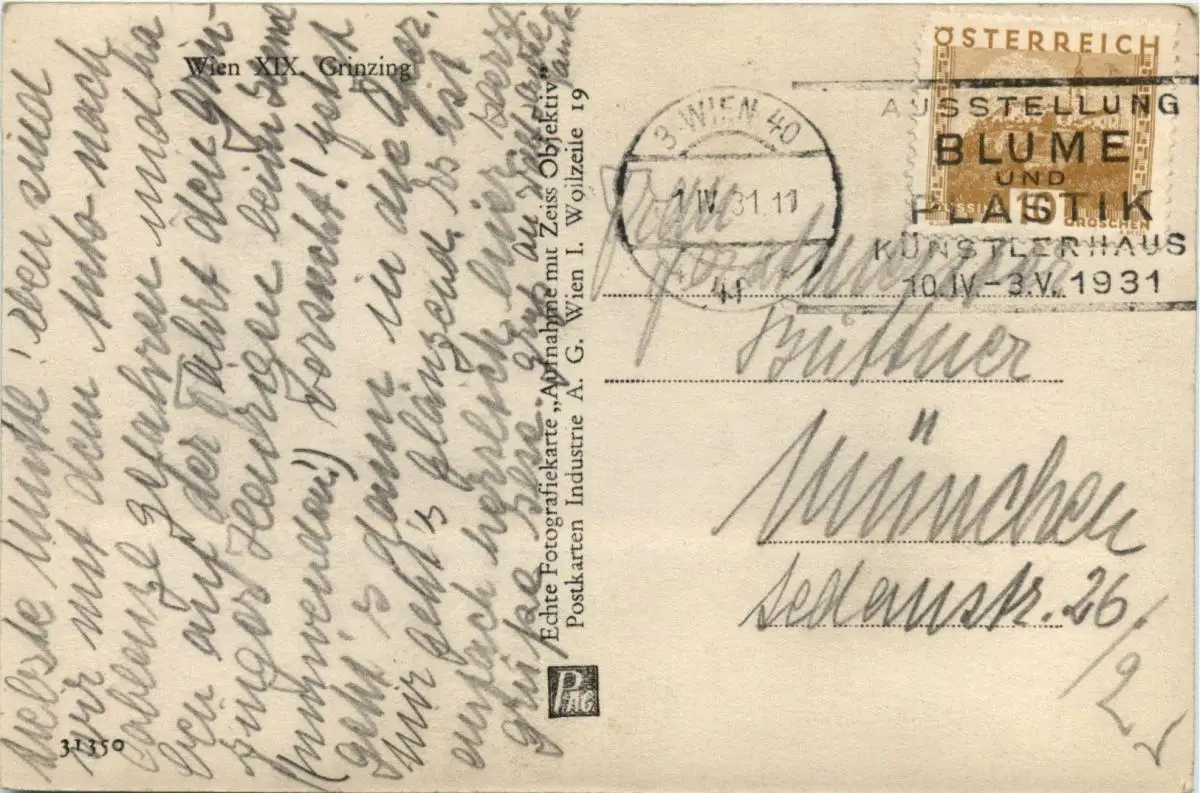 Wien XIX. Grinzing
liebste Mutte! eben sind
wir mit dem Auto nach
Coblenzl gefahren und ha
ben auf der Fahrt den Grin
zinger Heurigen beim
(umwenden!) versucht! jetzt
geht's dann in die Oper.
mir geht's glänzend, es ist
einfach herrlich hier herz
grüsse Ilse. Gruß an
Echte Fotografiekarte „Aufnahme mit Zeiss Objektiv“
Postkarten Industrie A. G. Wien I. Wollzeile 19
PAG
31350
ÖSTERREICH
10
GROSCHEN
3 WIEN 40
1 IV 31 11
AUSSTELLUNG
BLUME
UND
PLASTIK
KÜNSTLERHAUS
10.IV-3.V.1931
Frau
Büttner
München
Sedanstr. 26/2